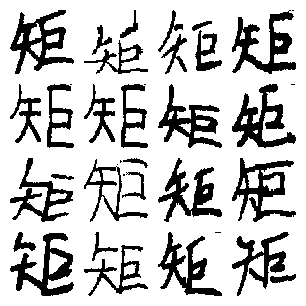 矩矩矩矩
矩矩矩矩
矩矩矩矩
矩矩矩矩